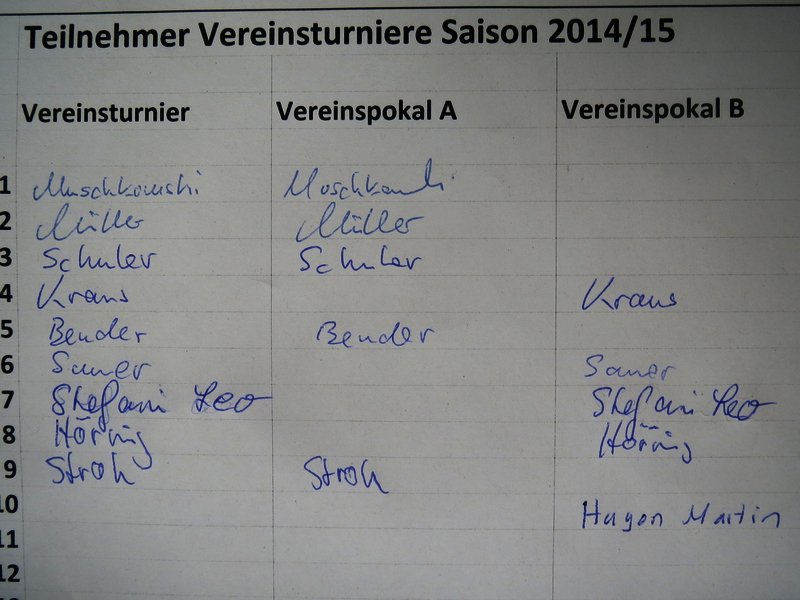 Teilnehmer Vereinsturniere Saison 2014/15
Vereinsturnier Vereinspokal A Vereinspokal B
1 Muschkowski
2 Müller Müller
3 Schuler Schuler
4 Kraus Kraus
5 Bender Bender
6 Sauer Sauer
7 Stefani Leo Stefani Leo
8 Hörnig Hörnig
9 Stroh Stroh
10 Hagen Martin
11
12